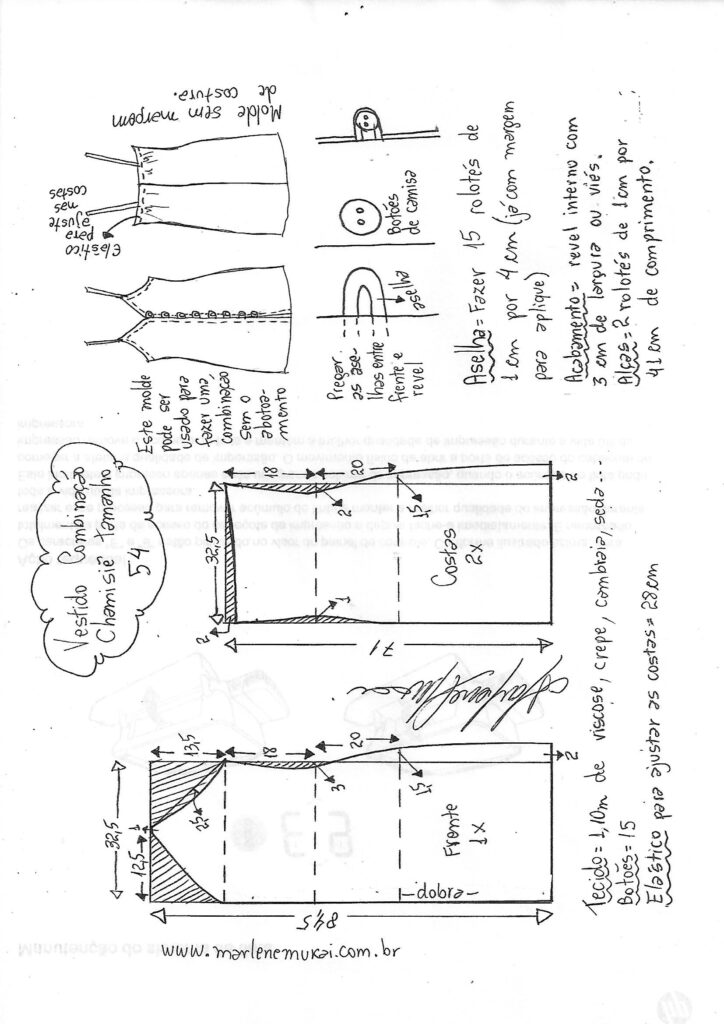 Vestido Combinação
Chamisiê tamanho
54
Este molde
pode ser
usado para
fazer uma
combinação
sem o
abotoa-
mento
Elástico
para
ajuste
nas
costas
Molde sem margem
de costura.
Pregar
as ase-
lhas entre
frente e
revel
aselha
Botões
de camisa
Aselha = Fazer 15 rolotés de
1 cm por 4 cm (já com margem
para aplique)
Acabamento = revel interno com
3 cm de largura ou viés.
Alças = 2 rolotés de 1cm por
41 cm de comprimento.
32,5
12,5
13,5
18
20
2,5
3
1,5
2
Frente
1x
-dobra-
84,5
32,5
18
20
2
2
1
1,5
2
Costas
2x
71
www.marlenemukai.com.br
Tecido = 1,10m de viscose, crepe, cambraia, seda...
Botões = 15
Elástico para ajustar as costas = 28cm